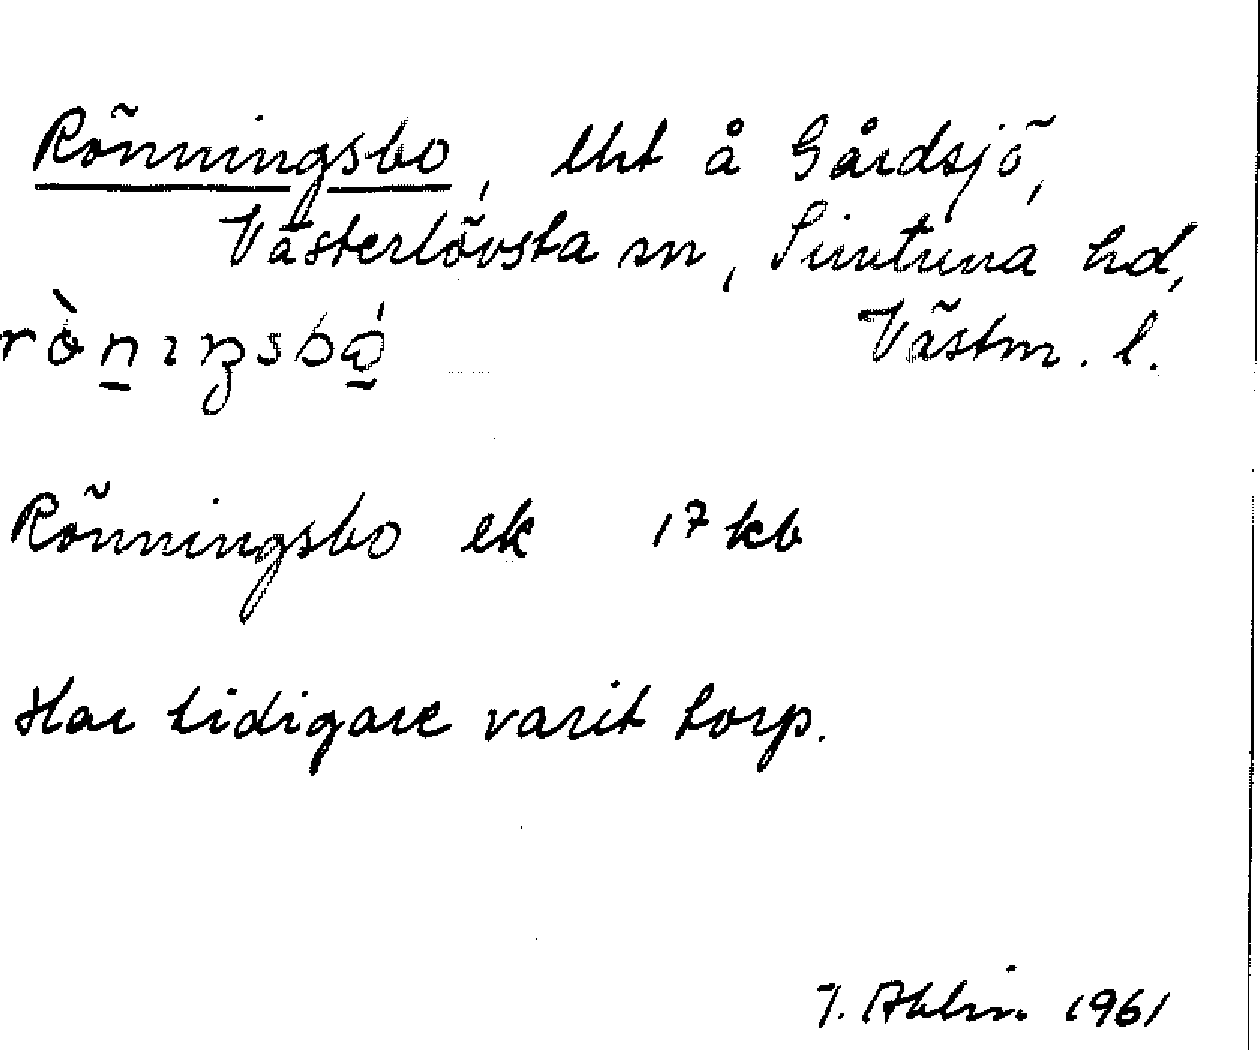 Rönningsbo, lht å Gårdsjö,
Västerlövsta sn, Simtuna hd,
Västm. l.
Rönningsbo ek 17 kb
Har tidigare varit torp.
J. Ahlin 1961